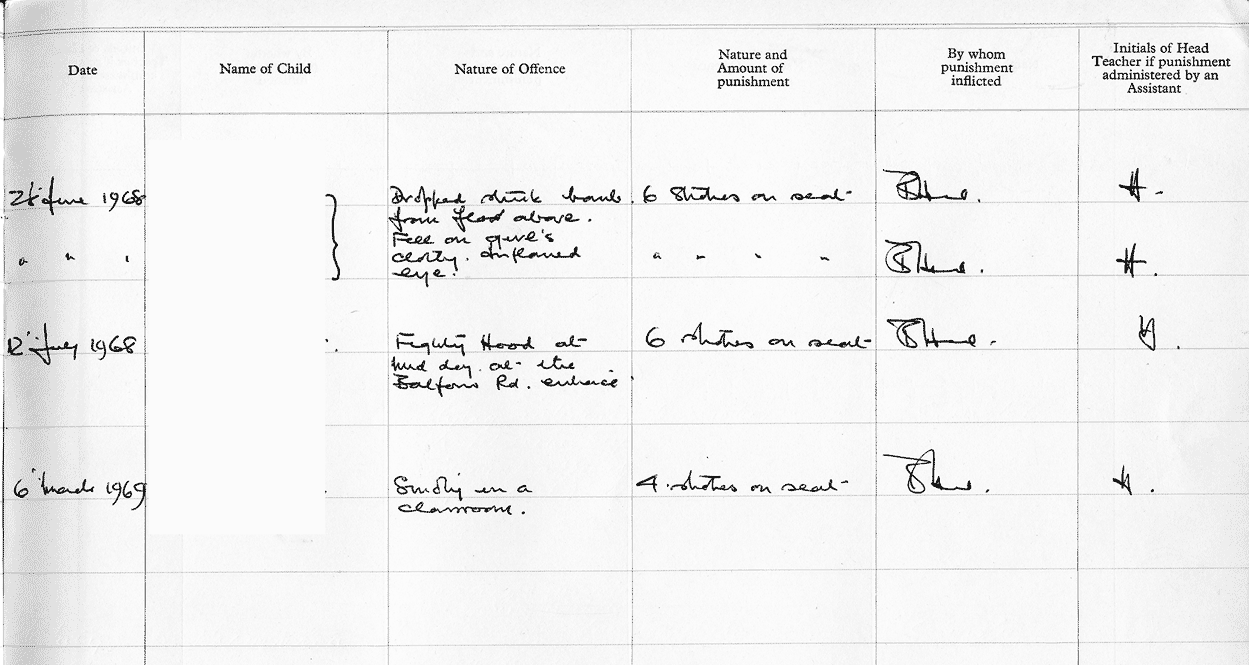 Date
Name of Child
Nature of Offence
Nature and
Amount of
punishment
By whom
punishment
inflicted
Initials of Head
Teacher if punishment
administered by an
Assistant
June 1968
Dropped stink bomb
6 strokes on seat
from above.
Fell on girl's
" " "
clothing. Inflamed
" " " "
eye.
12 July 1968
Fighting Hood at
6 strokes on seat
mid day at the
Balfour Rd. entrance
6 March 1969
Smoking in a
4 strokes on seat
classroom.